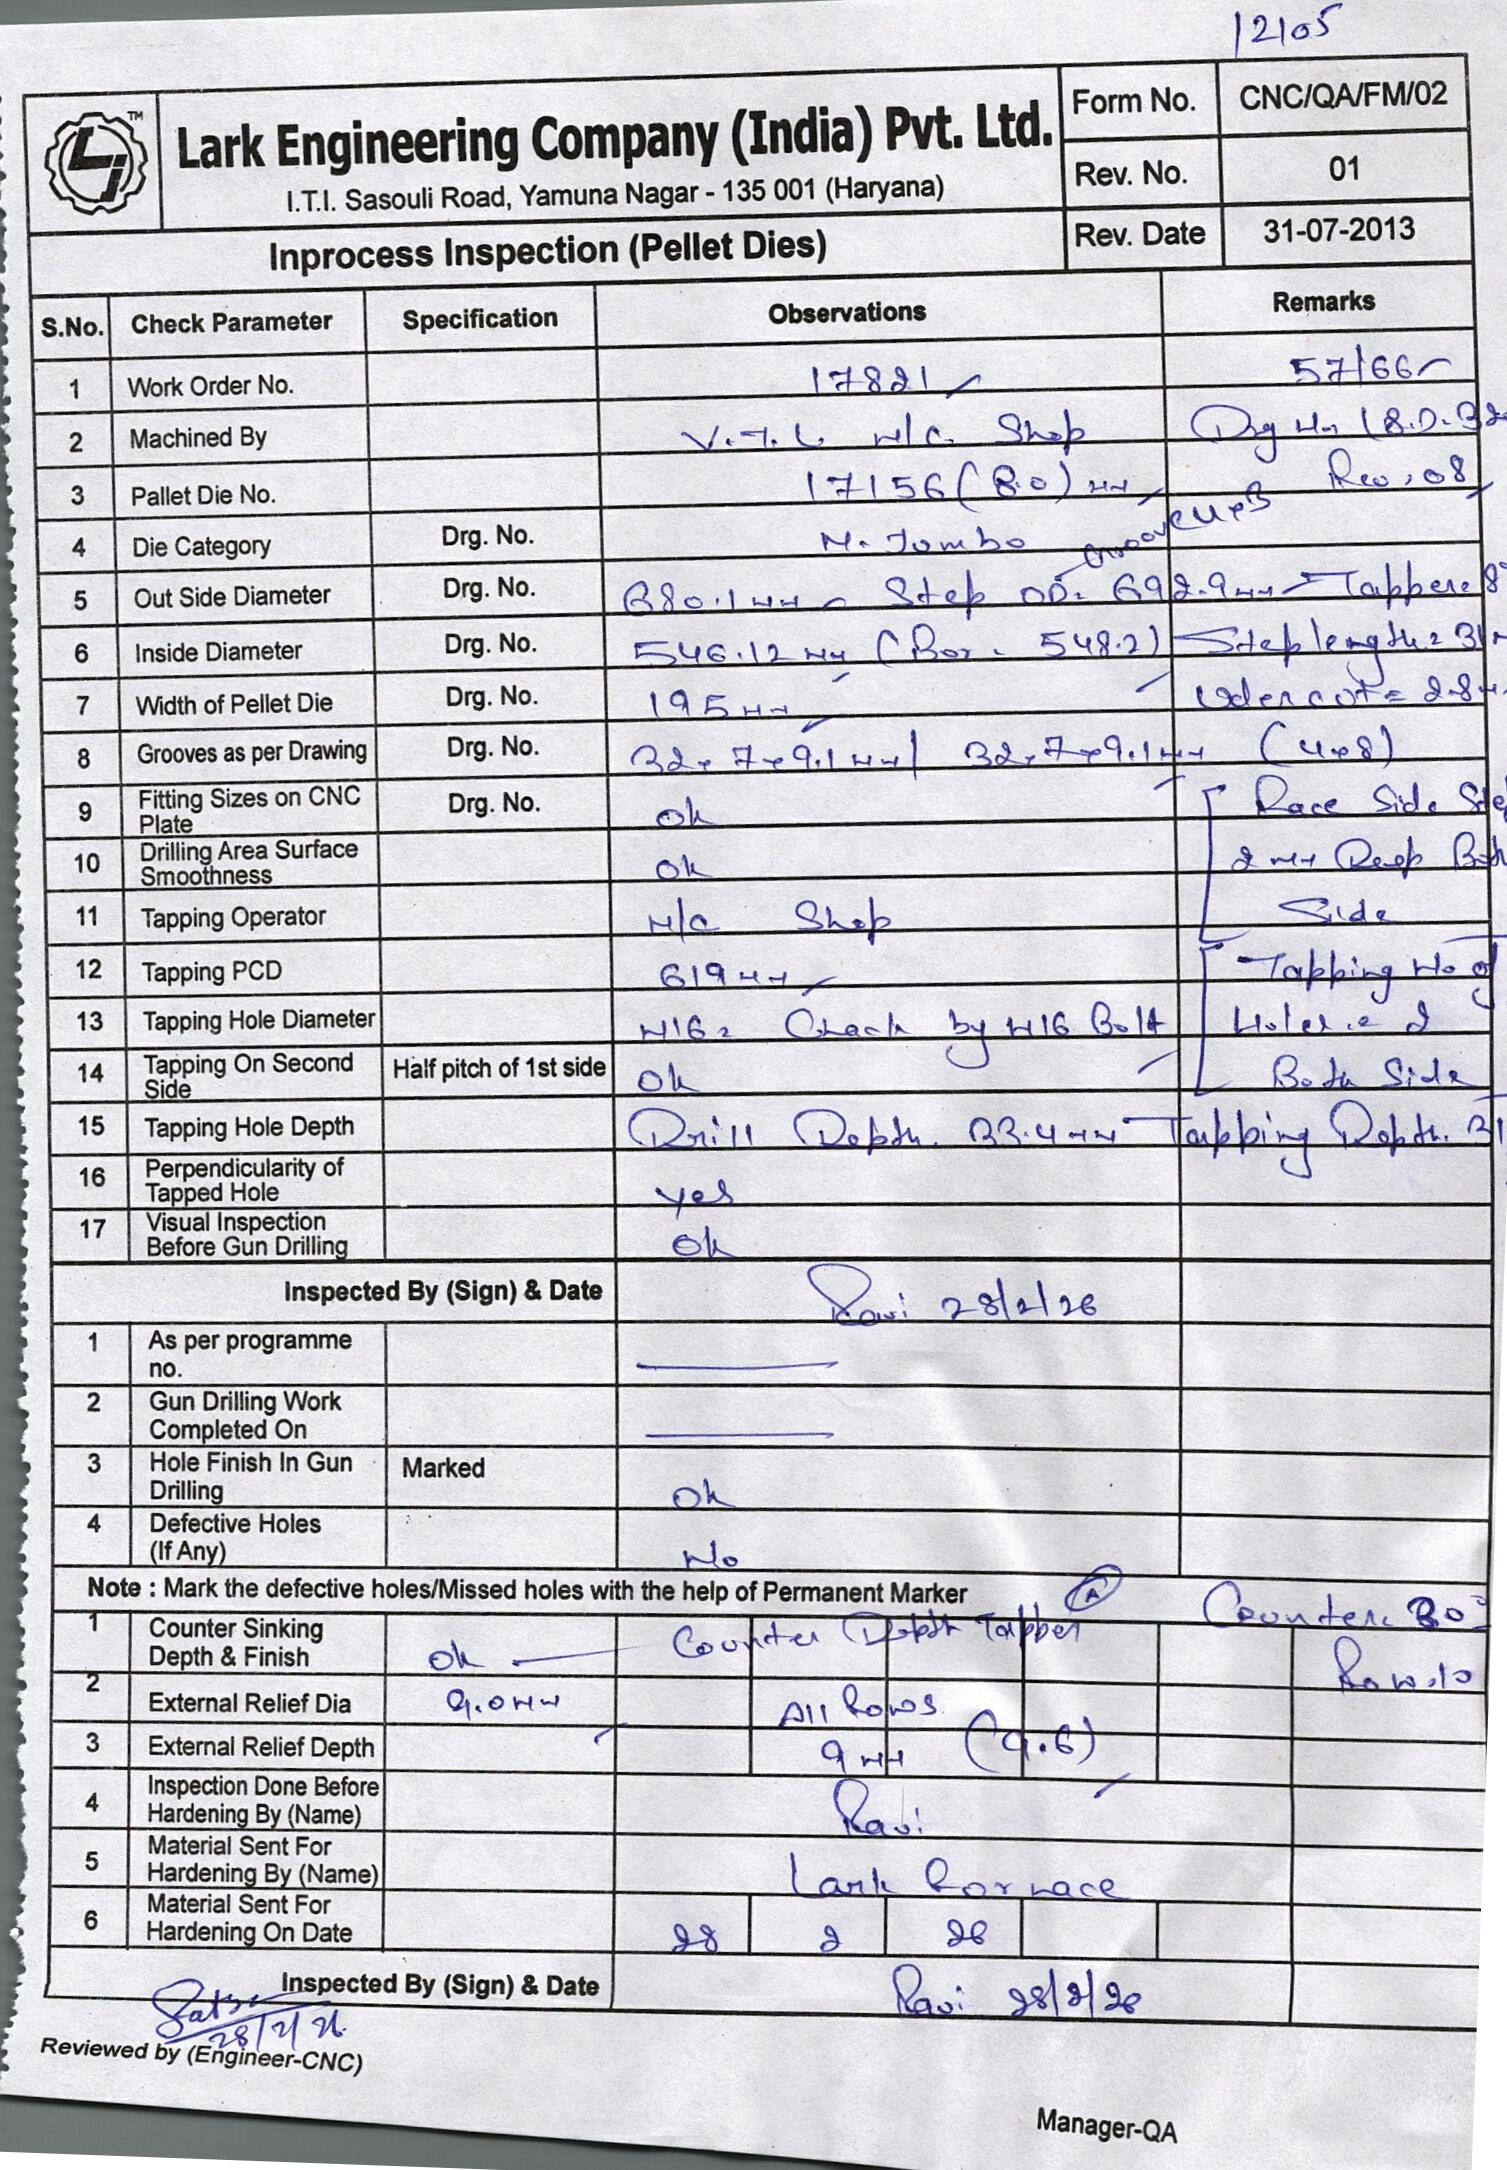 12105
TM
Lark Engineering Company (India) Pvt. Ltd.
I.T.I. Sasouli Road, Yamuna Nagar - 135 001 (Haryana)
Form No. CNC/QA/FM/02
Rev. No. 01
Inprocess Inspection (Pellet Dies)
Rev. Date 31-07-2013
S.No. Check Parameter Specification Observations Remarks
1 Work Order No. 17821 57/66
2 Machined By V.T.L M/C. Shop Drg
3 Pallet Die No. 17156 (8.0) mm Rev. 08
4 Die Category Drg. No. M. Jumbo Groove
5 Out Side Diameter Drg. No. 680.1 mm Step OD. 692.9 mm Tapper
6 Inside Diameter Drg. No. 546.12 mm (Bor. 548.2) Step length =
7 Width of Pellet Die Drg. No. 195 mm Udercut = 2.8
8 Grooves as per Drawing Drg. No. 32x7x9.1 mm / 32x7x9.1 mm (4x8)
9 Fitting Sizes on CNC Plate Drg. No. Ok Race Side
10 Drilling Area Surface Smoothness Ok 2 mm Deep Both
11 Tapping Operator M/C Shop Side
12 Tapping PCD 619 mm Tapping No of
13 Tapping Hole Diameter M16 = Check by M16 Bolt Holes = 2
14 Tapping On Second Side Half pitch of 1st side Ok Both Side
15 Tapping Hole Depth Drill Depth. 33.4 mm Tapping Depth.
16 Perpendicularity of Tapped Hole yes
17 Visual Inspection Before Gun Drilling Ok
Inspected By (Sign) & Date Ravi 28/2/26
1 As per programme no.
2 Gun Drilling Work Completed On
3 Hole Finish In Gun Drilling Marked Ok
4 Defective Holes (If Any) No
Note : Mark the defective holes/Missed holes with the help of Permanent Marker A Counter
1 Counter Sinking Depth & Finish Ok Counter Depth Tapper
2 External Relief Dia 9.0 mm All Rows
3 External Relief Depth 9 mm (9.6)
4 Inspection Done Before Hardening By (Name) Ravi
5 Material Sent For Hardening By (Name) Lark Fornace
6 Material Sent For Hardening On Date 28 2 26
Inspected By (Sign) & Date Ravi 28/2/26
Reviewed by (Engineer-CNC)
Manager-QA